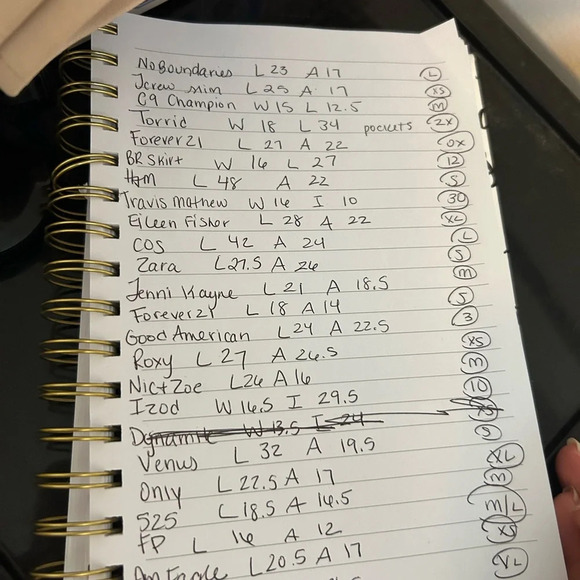 No Boundaries L 23 A 17 L
Jcrew slim L 25 A 17 XS
C9 Champion W 15 L 12.5 M
Torrid W 18 L 34 pockets 2X
Forever 21 L 27 A 22 0X
BR Skirt W 16 L 27 12
H&M L 48 A 22 S
Travis Mathew W 16 I 10 30
Eileen Fisher L 28 A 22 XL
COS L 42 A 24 L
Zara L 27.5 A 26 S
Jenni Kayne L 21 A 18.5 M
Forever 21 L 18 A 14 S
Good American L 24 A 22.5 3
Roxy L 27 A 26.5 XS
Nic+Zoe L 26 A 16 M
Izod W 16.5 I 29.5
Dynamite W 13.5 I 24
Venus L 32 A 19.5 S
Only L 22.5 A 17 XL
525 L 18.5 A 16.5 M
FP L 16 A 12 M/L
Am Eagle L 20.5 A 17 XS